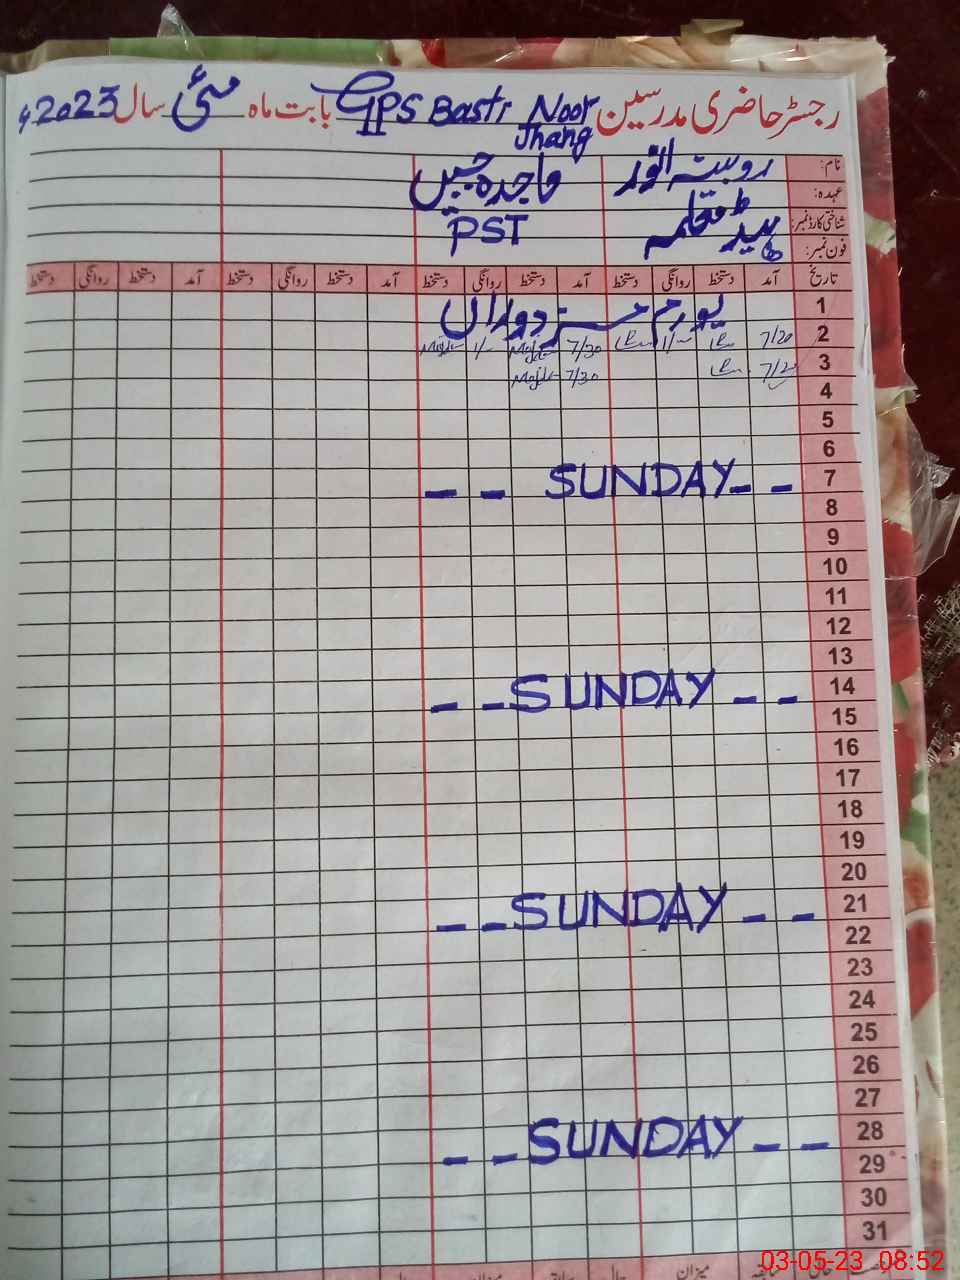 رجسٹر حاضری مدرسین GPS Basti Noor Jhang بابت ماہ مئی سال 2023ء
نام: روبینہ انور ماجدہ جبیں
عہدہ:
شناختی کارڈ نمبر: ہیڈ معلمہ PST
فون نمبر:
تاریخ آمد دستخط روانگی دستخط آمد دستخط روانگی دستخط آمد دستخط روانگی دستخط آمد دستخط روانگی دستخط
1 یوم مزدوراں
2 7/20 1/- 7/30 Majida 1/- Majida
3 7/20 7/30 Majida
4
5
6
7 -- SUNDAY --
8
9
10
11
12
13
14 -- SUNDAY --
15
16
17
18
19
20
21 -- SUNDAY --
22
23
24
25
26
27
28 -- SUNDAY --
29
30
31
میزان
03-05-23 08:52